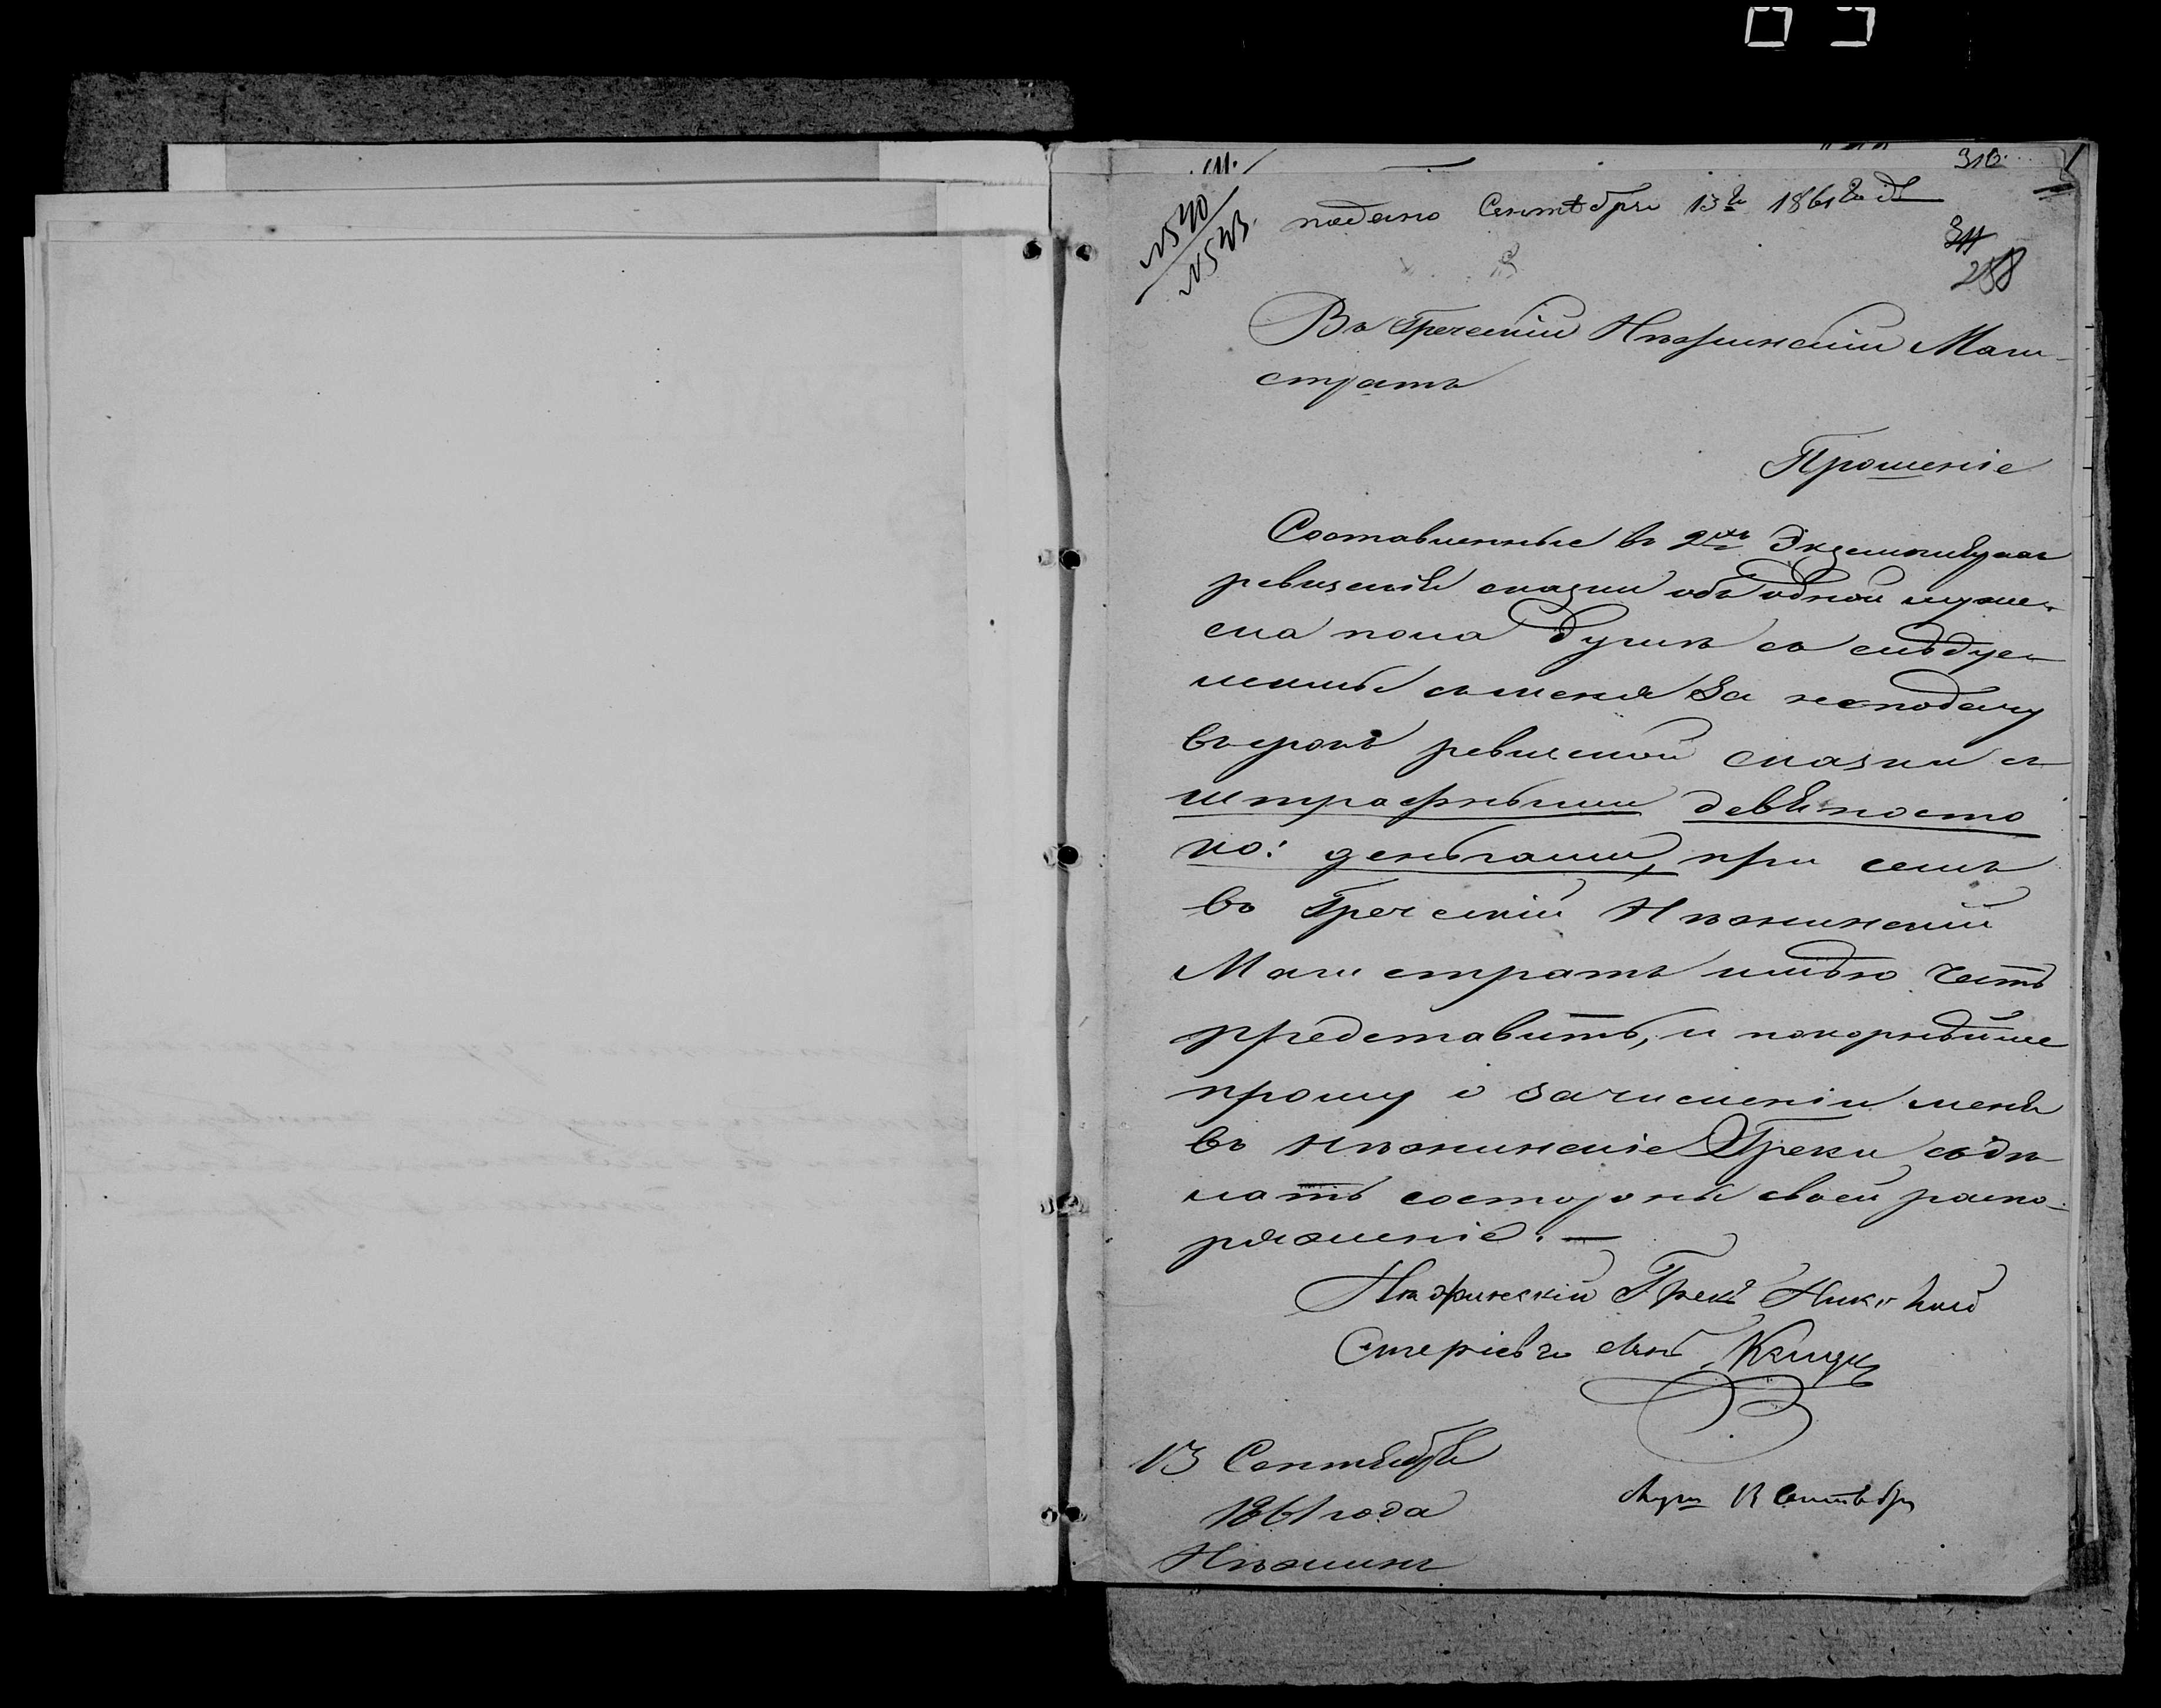 310.
№ 540
№ 543.
подано Сентября 13го 1861го года
311
288
Въ Греческій Нѣжинскій Маги-
стратъ
Прошеніе
Составленные въ 2хъ Экземплярах
ревизскія сказки объ одной мужес-
ка пола душѣ съ слѣдуе-
мыми съ меня за неподачу
въ срокъ ревизской сказки
штрафными девяносто
ко: деньгами, при семъ
въ Греческій Нѣжинскій
Магистратъ имѣю честь
представить, и покорнѣйше
прошу о зачисленіи меня
въ нѣжинскіе Греки сдѣ-
лать состороны своей распо-
ряженіе. —
Нѣжинскій Грекъ Николай
Стеріевъ сынъ
13 Сентября
1861 года
Нѣжинъ
13 Сентября